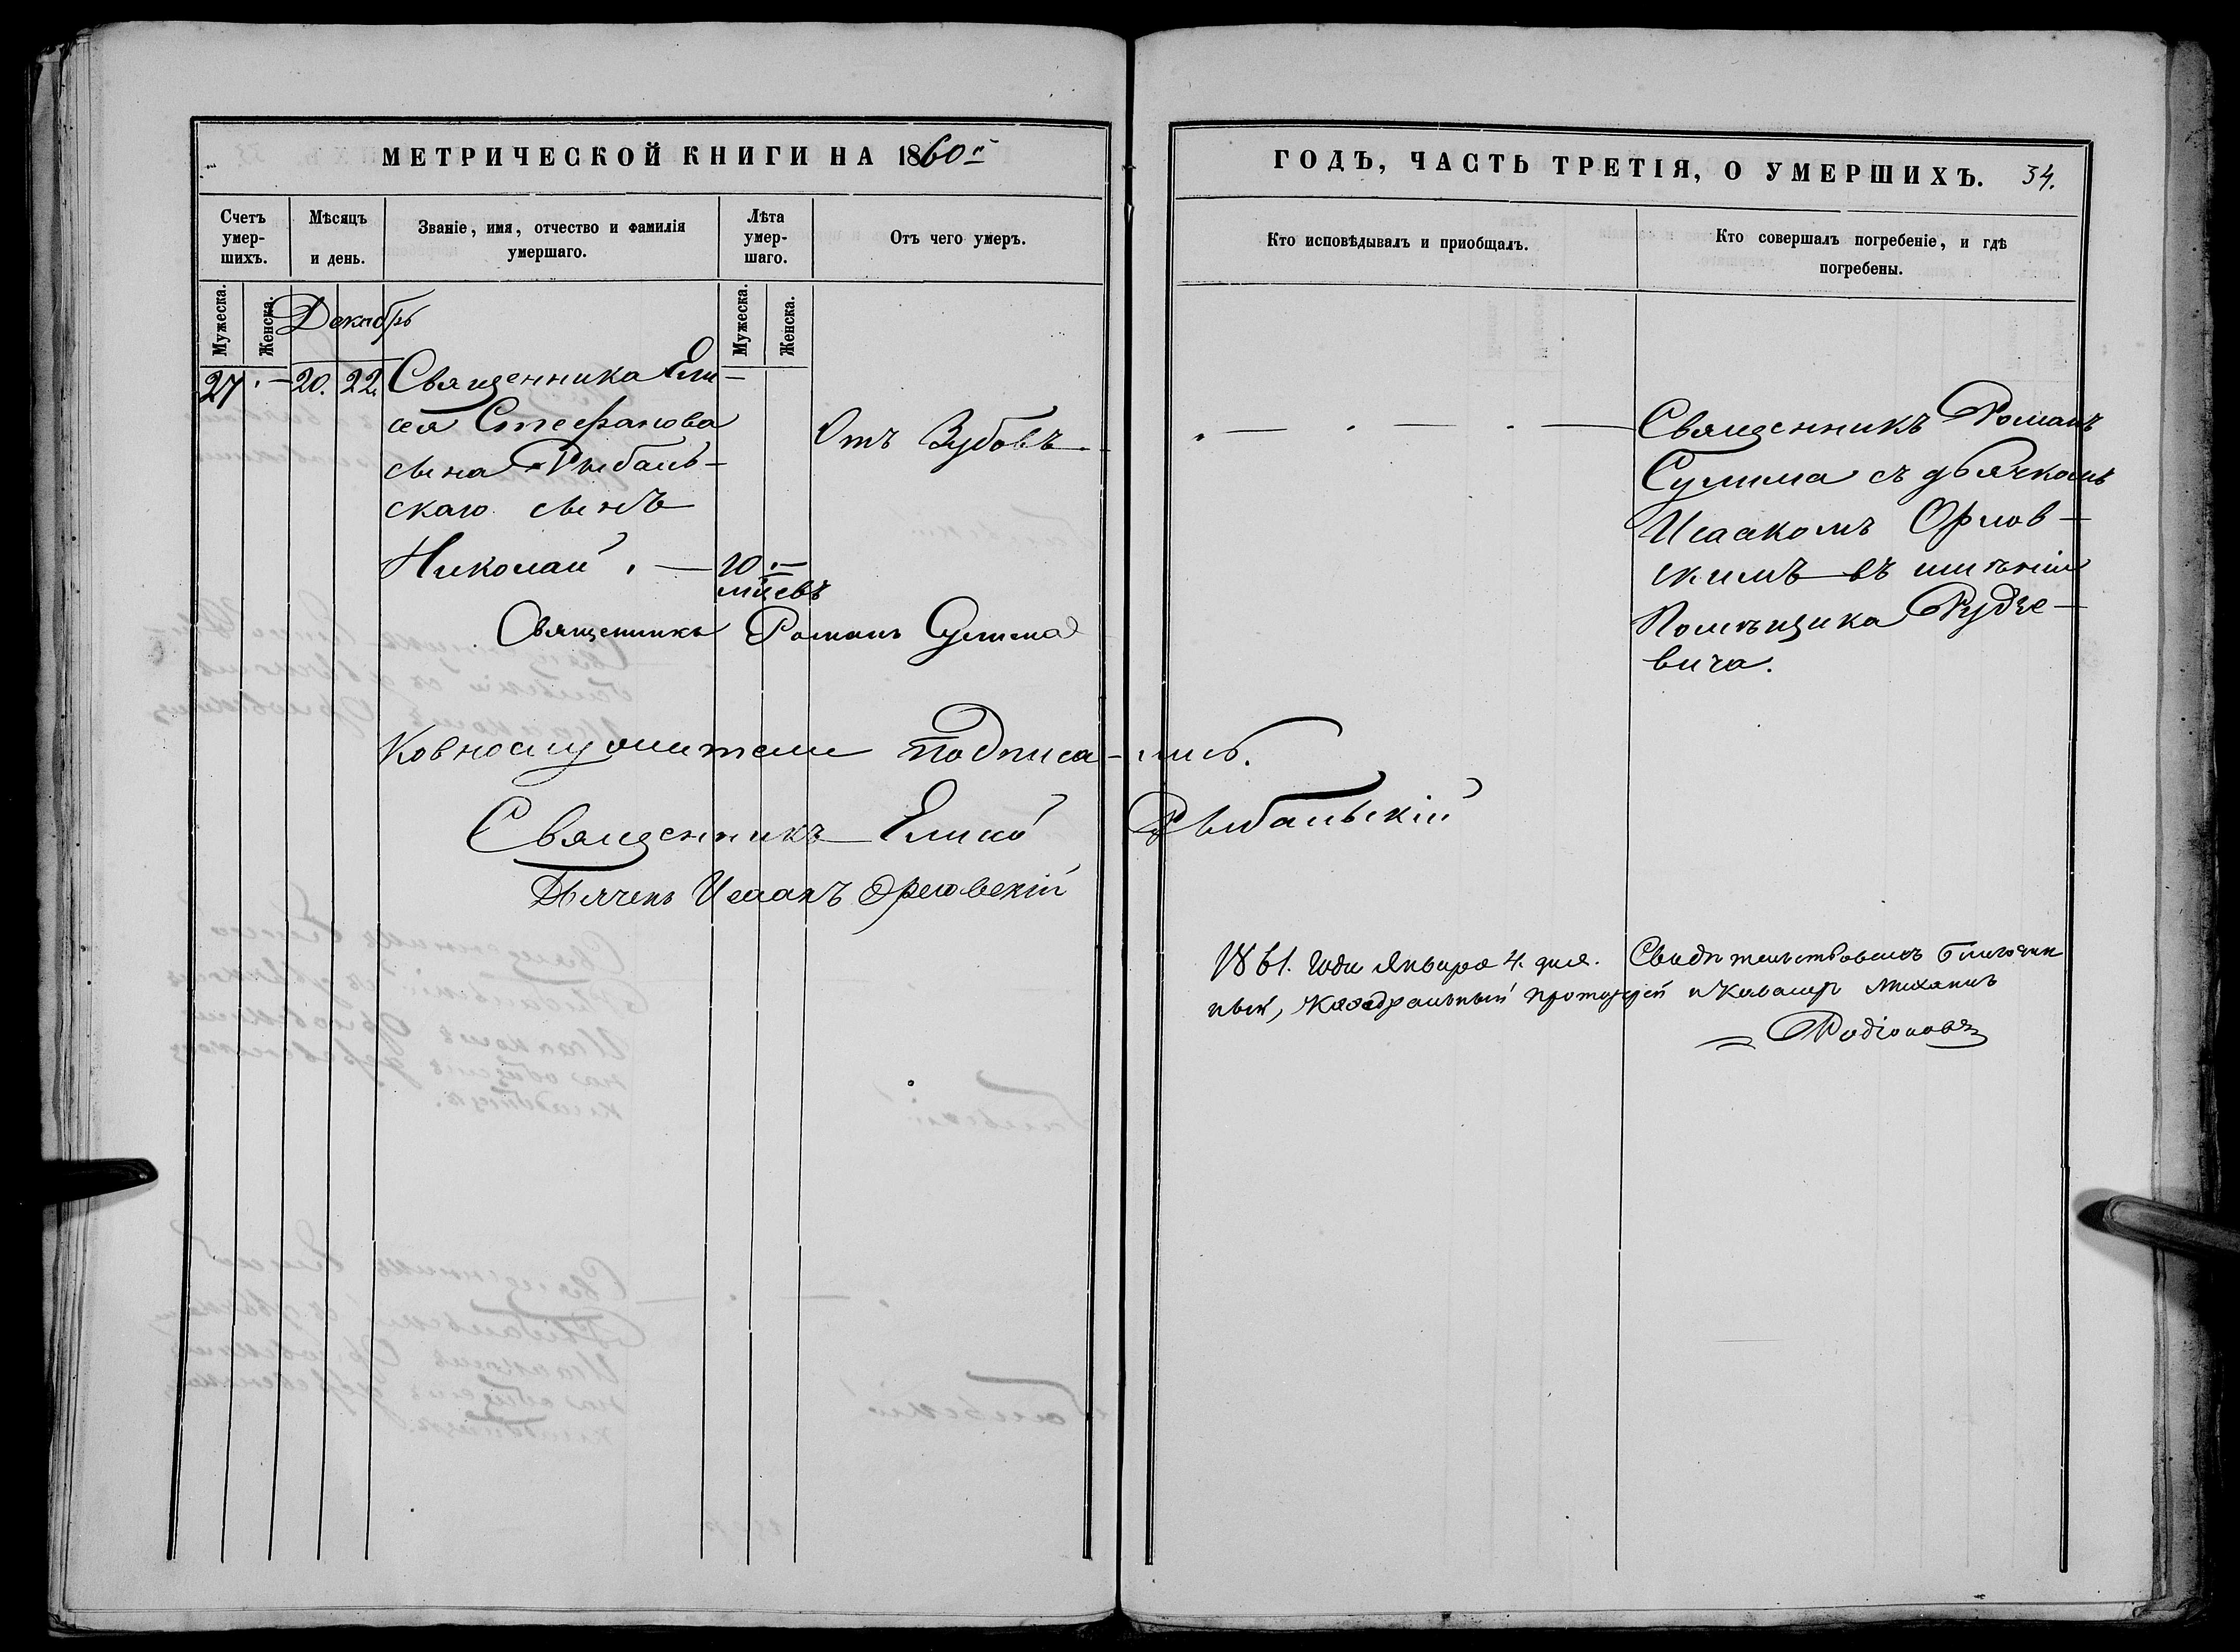 МЕТРИЧЕСКОЙ КНИГИ НА 1860й
ГОДЪ, ЧАСТЬ ТРЕТІЯ, О УМЕРШИХЪ. 34.
Счетъ
умер-
шихъ.
Мѣсяцъ
и день.
Званіе, имя, отчество и фамилія
умершаго.
Лѣта
умер-
шаго.
Отъ чего умеръ.
Кто исповѣдывалъ и приобщалъ.
Кто совершалъ погребеніе, и гдѣ
погребены.
Мужеска.
Женска.
Декабрь
Мужеска.
Женска.
27 . — 20. 22. Священника Ели-
сея Стефанова
сына Рыбаль-
скаго сынъ
Николай . — 10 . —
мцевъ
Отъ Зубовъ.
Священникъ Романъ
Сулима съ дьячкомъ
Исаакомъ Орлов-
скимъ въ имѣніи
Помѣщика Рудзе-
вича.
Священникъ Романъ Сулима
К овно слу жители подписа-лись.
Священникъ Елисей Рыбальскій
Дьячекъ Исаакъ Орловскій
1861. года Января 4. дня. Свидѣтельствовалъ Благочин
ный, Каѳедральный протоіерей и Кавалеръ Михаилъ
Родіоновъ